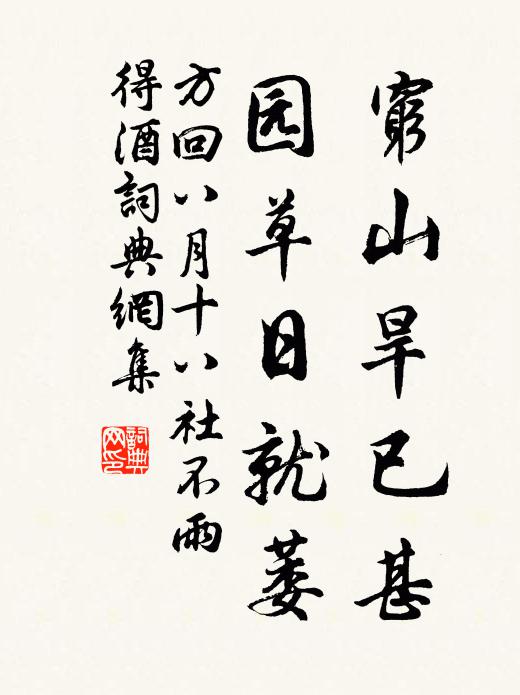 窮山旱已甚
园草日就萎
方回八月十八社不雨
得酒詞典網集
詞典
网印